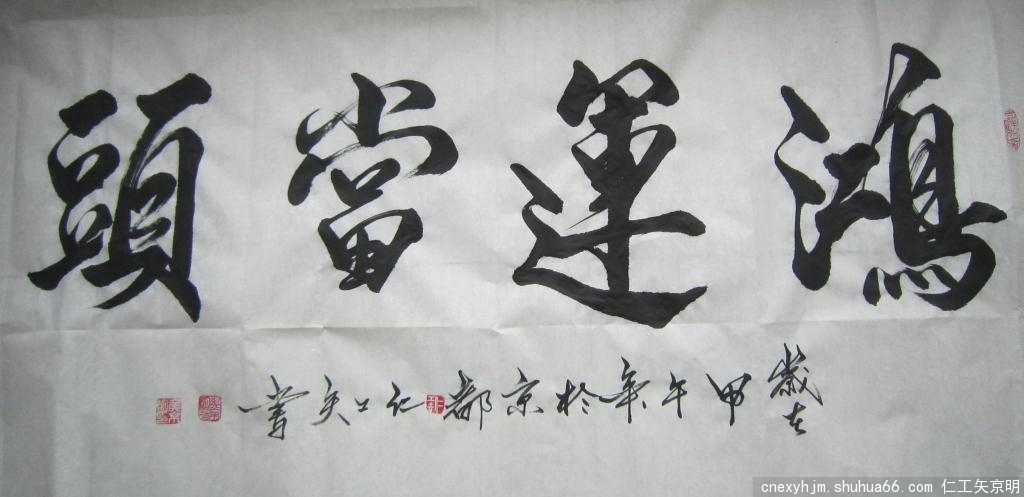 鴻運當頭
歲在甲午年於京都仁工矢書
cnexyhjm.shuhua66.com 仁工矢京明